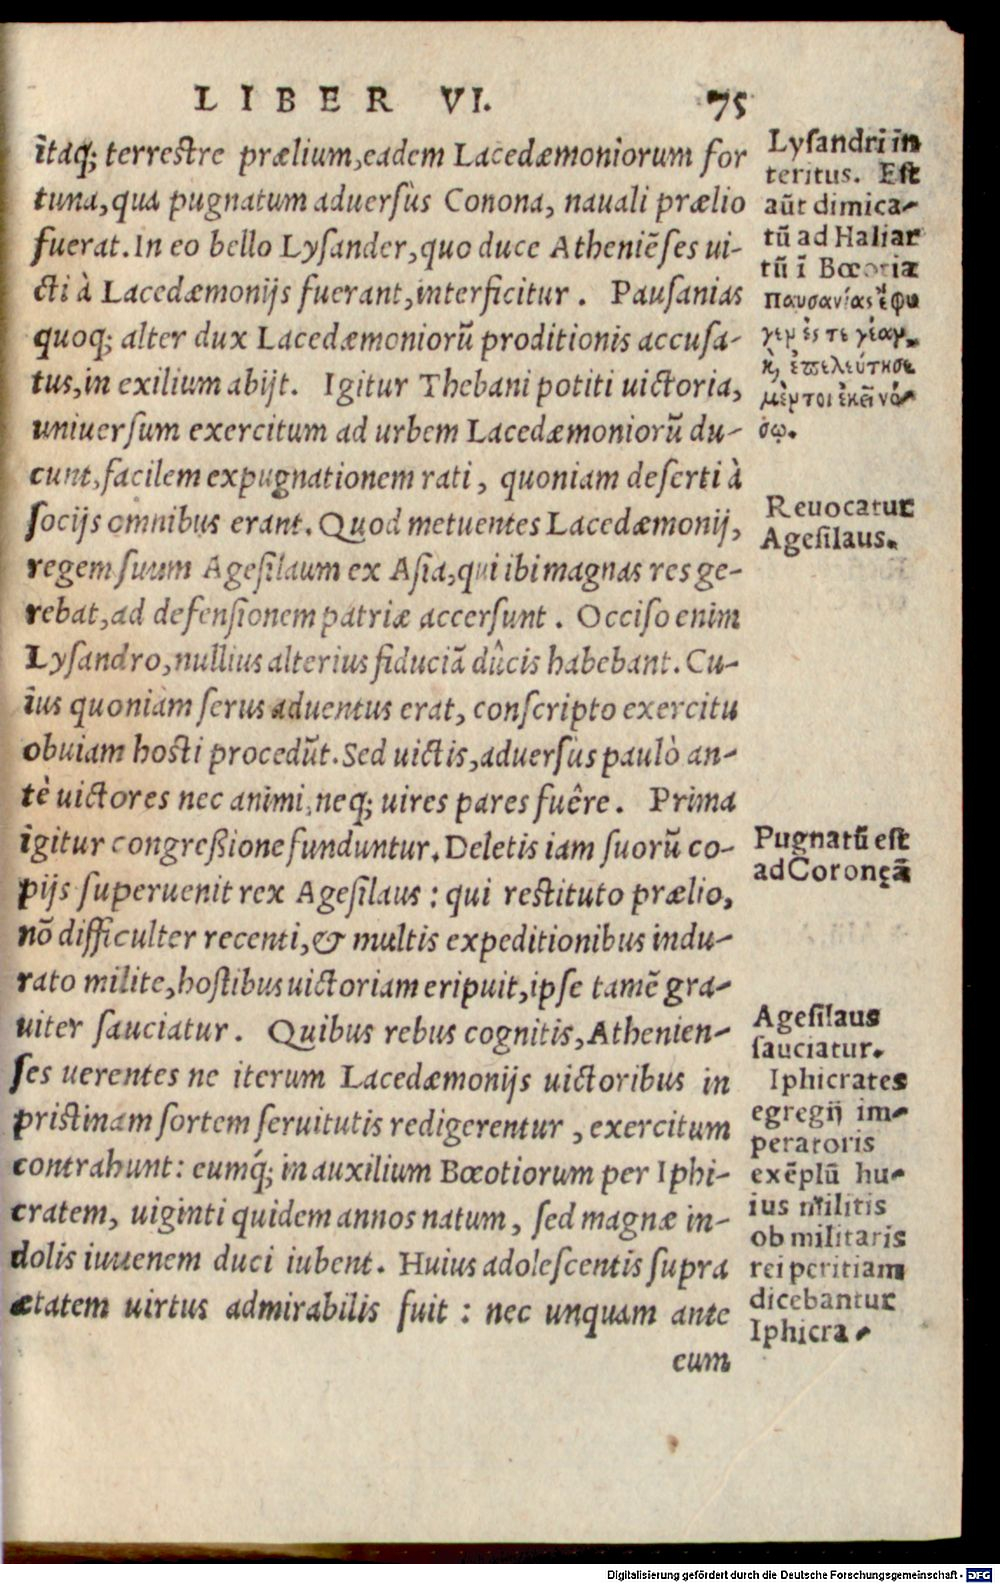 LIBER VI. 75
itaq; terrestre prælium, eadem Lacedæmoniorum for
tuna, qua pugnatum aduersùs Conona, nauali prælio
fuerat. In eo bello Lysander, quo duce Atheniẽses ui-
cti à Lacedæmonijs fuerant, interficitur. Pausanias
quoq; alter dux Lacedæmoniorũ proditionis accusa-
tus, in exilium abijt. Igitur Thebani potiti uictoria,
uniuersum exercitum ad urbem Lacedæmoniorũ du-
cunt, facilem expugnationem rati, quoniam deserti à
socijs omnibus erant. Quod metuentes Lacedæmonij,
regem suum Agesilaum ex Asia, qui ibi magnas res ge-
rebat, ad defensionem patriæ accersunt. Occiso enim
Lysandro, nullius alterius fiduciã dûcis habebant. Cu-
ius quoniam serus aduentus erat, conscripto exercitu
obuiam hosti procedũt. Sed uictis, aduersùs paulò an-
tè uictores nec animi, neq; uires pares fuêre. Prima
igitur congreßione funduntur. Deletis iam suorũ co-
pijs superuenit rex Agesilaus: qui restituto prælio,
nõ difficulter recenti, & multis expeditionibus indu-
rato milite, hostibus uictoriam eripuit, ipse tamẽ gra-
uiter sauciatur. Quibus rebus cognitis, Athenien-
ses uerentes ne iterum Lacedæmonijs uictoribus in
pristinam sortem seruitutis redigerentur, exercitum
contrahunt: eumq́; in auxilium Bœotiorum per Iphi-
cratem, uiginti quidem annos natum, sed magnæ in-
dolis iuuenem duci iubent. Huius adolescentis supra
ætatem uirtus admirabilis fuit: nec unquam ante
cum
Lysandri in
teritus. Est
aũt dimica-
tũ ad Haliar
tũ ĩ Bœotia
Παυσανίας ἔφυ
γεν ἐς τεγέαν,
κ, ἐτελεύτησε
μέντοι ἐκεῖ νό-
σῳ.
Reuocatur
Agesilaus.
Pugnatũ est
ad Coronęã
Agesilaus
sauciatur.
Iphicrates
egregij im-
peratoris
exẽplũ hu-
ius militis
ob militaris
rei peritiam
dicebantur
Iphicra-
Digitalisierung gefördert durch die Deutsche Forschungsgemeinschaft - DFG